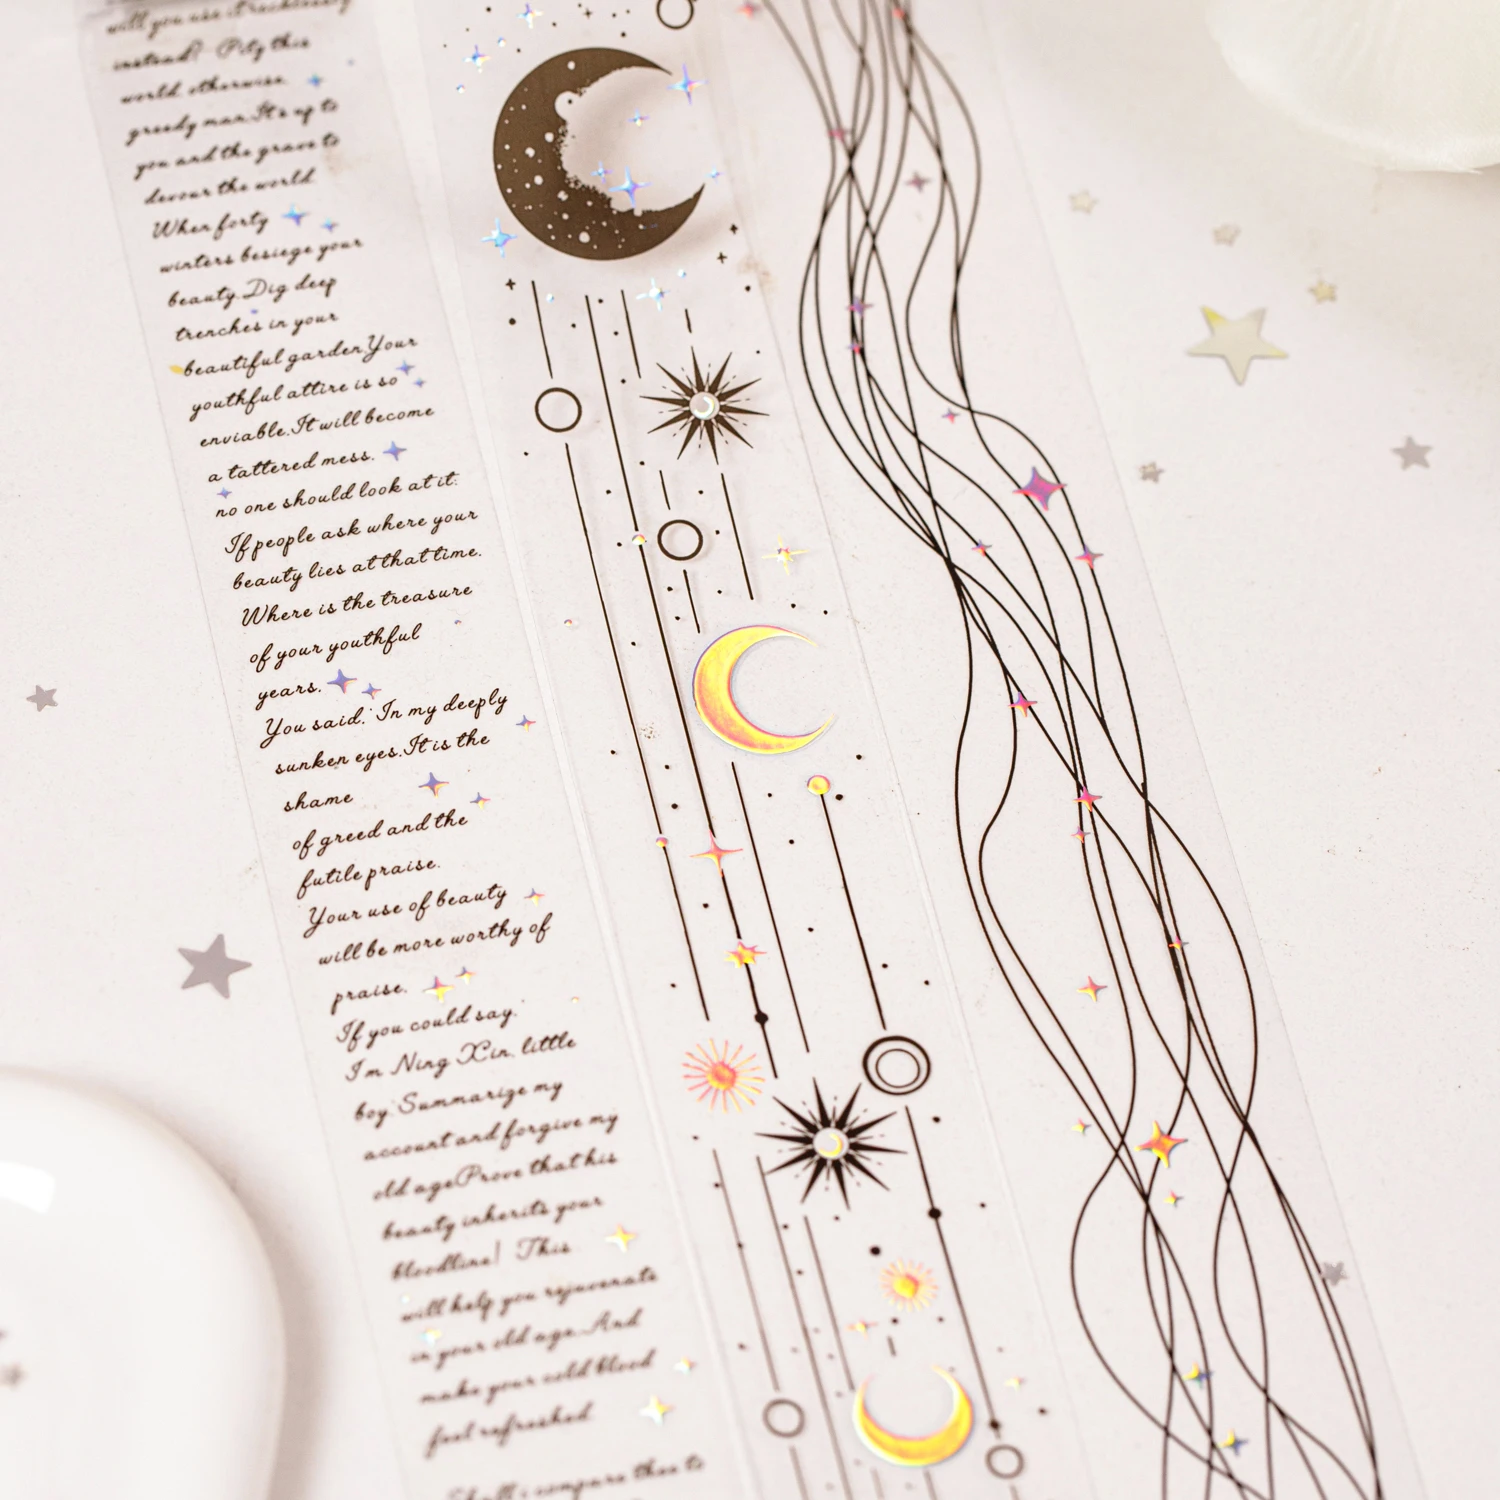 will you use it recklessly
instead? Pity this
world otherwise.
greedy man.It's up to
you and the grave to
devour the world.
When forty
winters besiege your
beauty.Dig deep
trenches in your
beautiful garden.Your
youthful attire is so
enviable.It will become
a tattered mess.
no one should look at it.
If people ask where your
beauty lies at that time.
Where is the treasure
of your youthful
years.
You said.'In my deeply
sunken eyes.It is the
shame
of greed and the
futile praise.
Your use of beauty
will be more worthy of
praise.
If you could say.'
I'm Ning Xin, little
boy.'Summarize my
account and forgive my
old age.Prove that his
beauty inherits your
bloodline! This
will help you rejuvenate
in your old age.And
make your cold blood
feel refreshed.
Shall i compare thee to